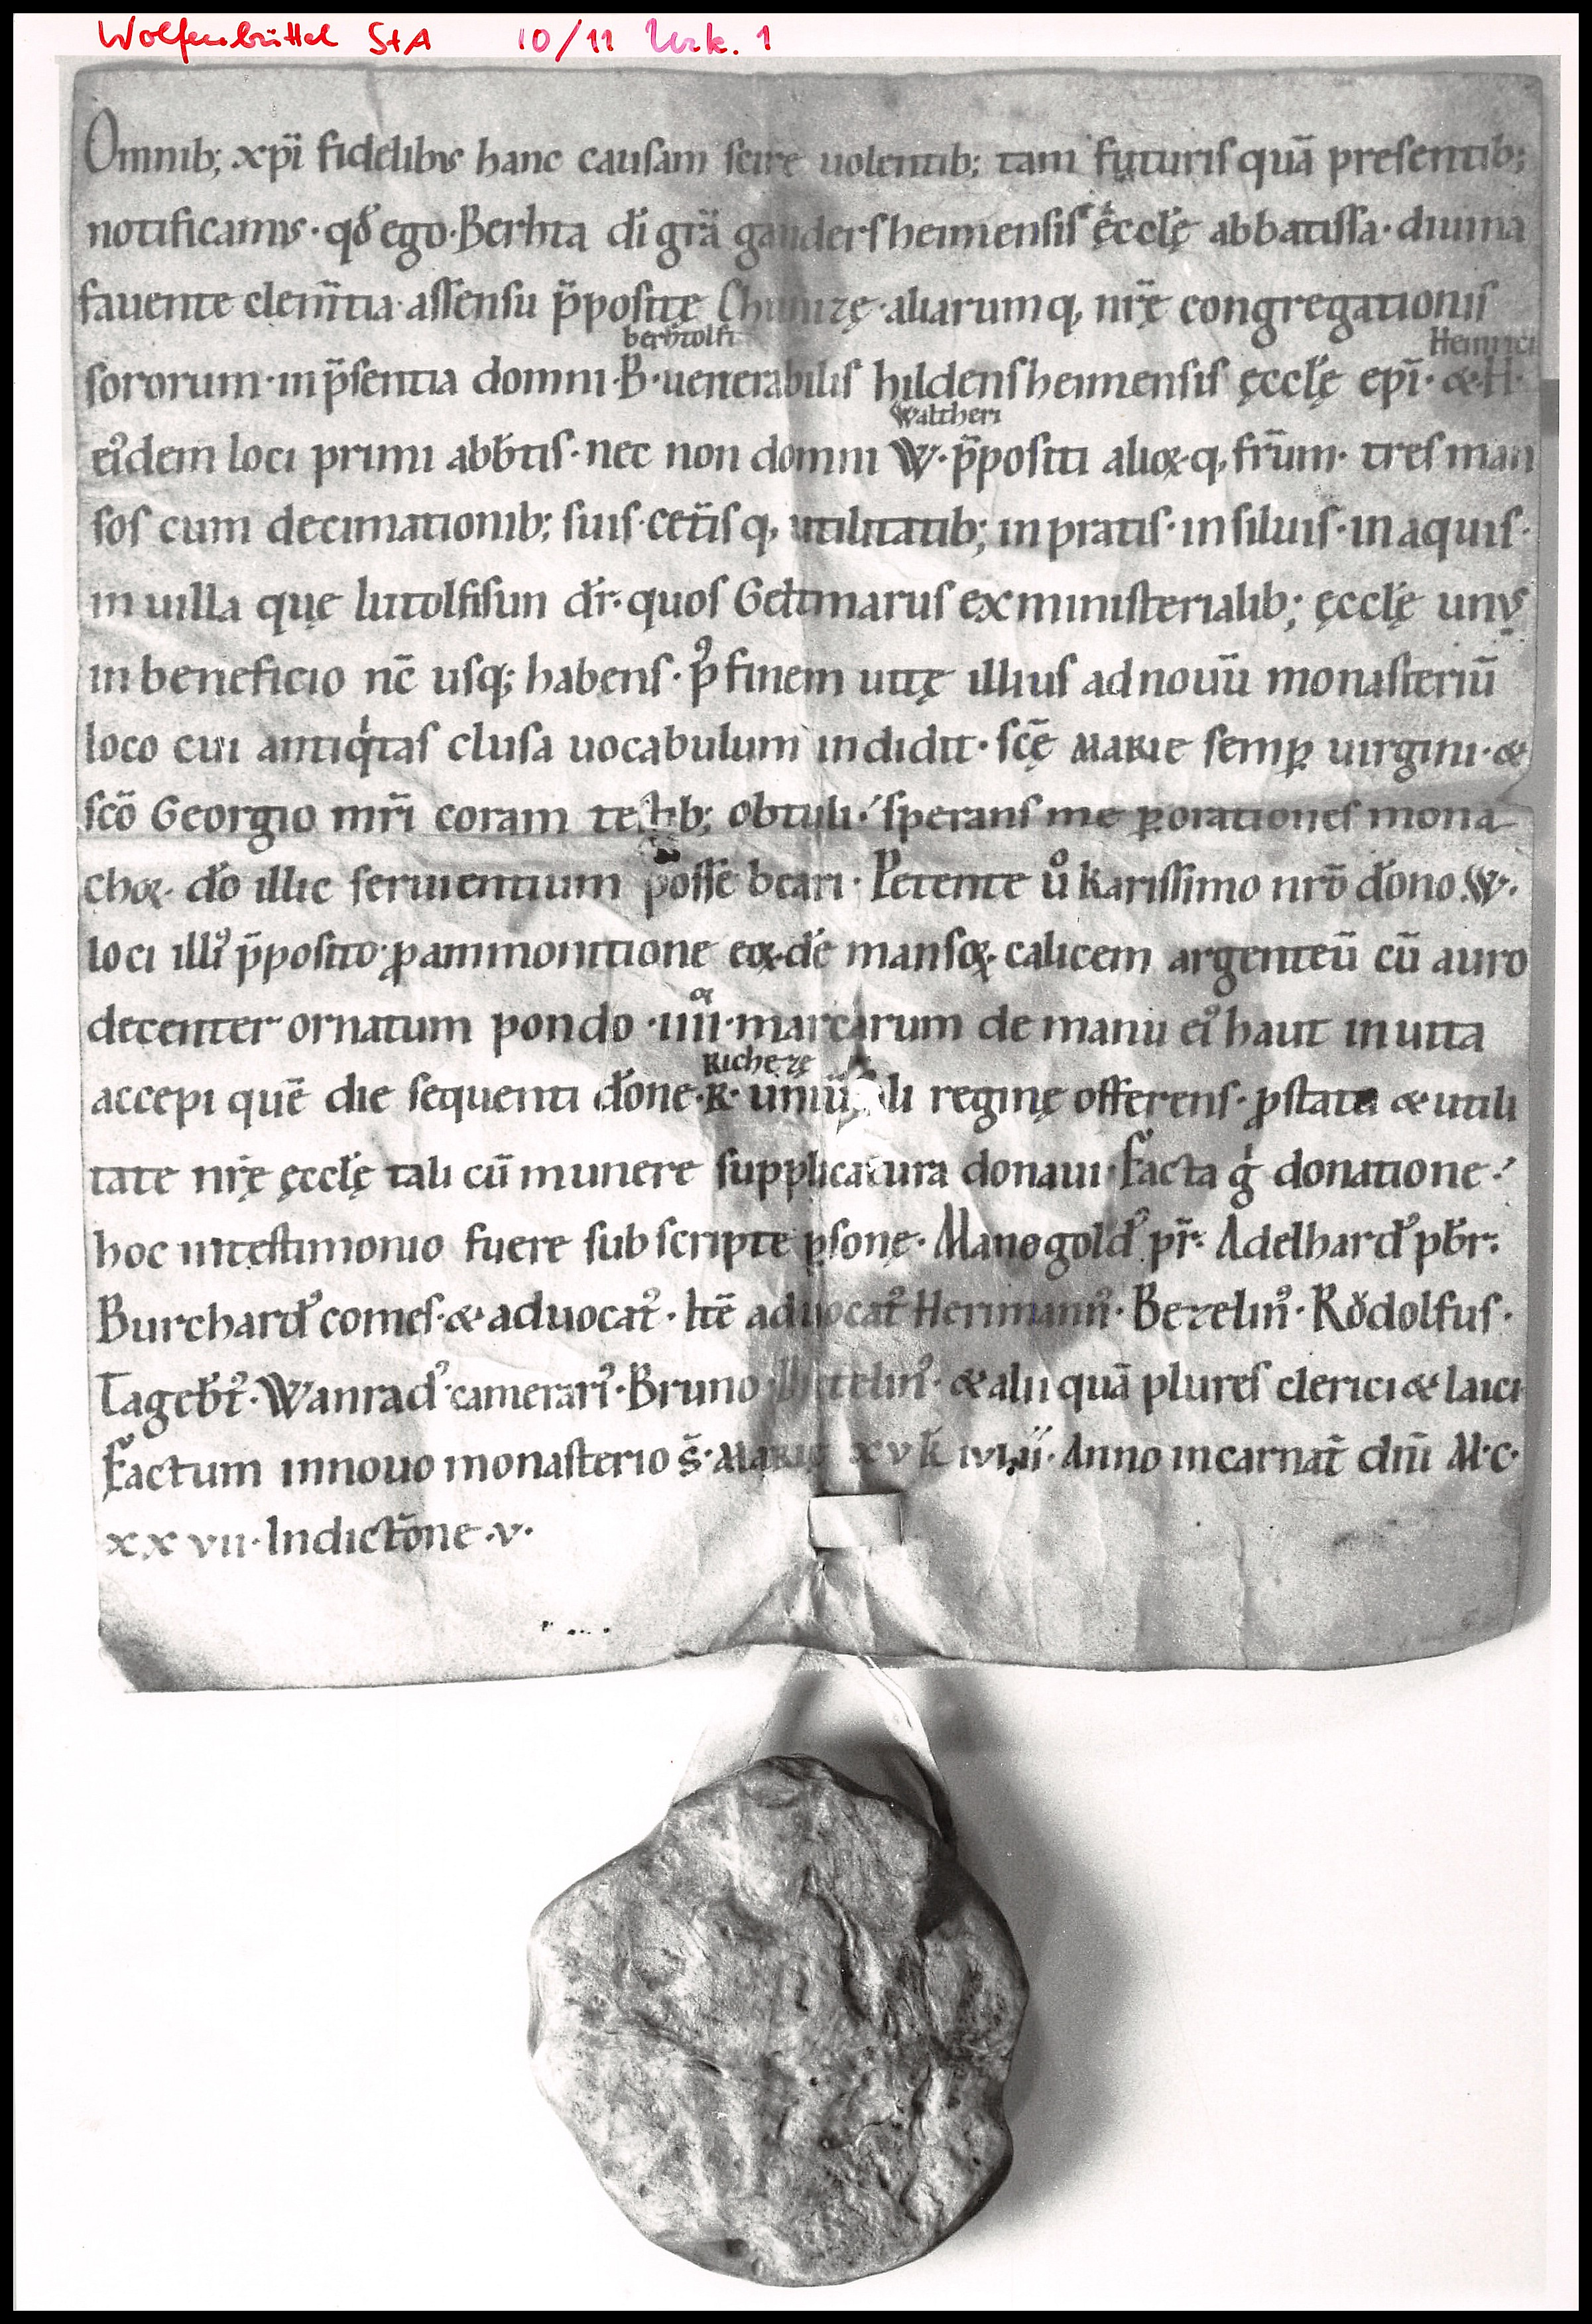 Wolfenbüttel StA 10/11 Urk. 1
Omnib; xp̄i fidelibus hanc causam scire uolentib; tam futuris quā presentib;
notificamus · qđ ego · Berhta dī grā gandersheimensis ęcclę abbatissa · diuina
fauente clem̄tia · assensu p̄positę aliarumq, nr̄ę congregationis
bertolfi Heinrici
sororum · in p̄sentia domni · B · uenerabilis hildensheimensis ęcclę ep̄i · & · H ·
Waltheri
eꝰdem loci primi abb̄tis · nec non domni W · p̄positi alioꝝ · q, fr̄um · tres man
sos cum decimationib; suis · cet̄isq, utilitatib; in pratis · in siluis · in aquis ·
in uilla quę lutolfisun dr̄ · quos Getmarus ex ministerialib; ęcclę unus
in beneficio nc̄ usq; habens · p̾ finem uitę illius ad nouū monasteriū
loco cui antiqͥtas clusa uocabulum indidit · sc̄ę MARIE semp̱ uirgini · &
sc̄o Georgio mr̄i coram testib; obtuli · sperans me ꝑ orationes mona
choꝝ · dō illic seruientium posse beari · Petente uͦ karissimo nr̄o dōno · W ·
loci illiꝰ p̄posito · ꝓ ammonitione eoꝝ · dē mansoꝝ · calicem argenteū cū auro
decenter ornatum pondo · iiii · marcarum de manu eiꝰ haut inuita
Richezę
accepi quē die sequenti dōne · R · li reginę offerens · ꝓ statu & utili
tate nr̄ę ęcclę tali cū munere supplicatura donaui · Facta gͥ donatione ·
hoc in testimonio fuere subscripte ꝑsonę · Manogoldꝰ pr̄ · Adelhardꝰ pb̄r ·
Burchardꝰ comes · & aduocatꝰ · Itē aduocatꝰ Herimannꝰ · Bezelinꝰ · Rͦudolfus ·
Tageb̄tꝰ · Wanradꝰ · camerariꝰ · Bruno · & alii quā plures clerici & laici
Factum in nouo monasterio s̄ · MARIE xv k̄ iulii · Anno incarnat̄ dn̄i M · C ·
xx vii · Indict̄one · v ·